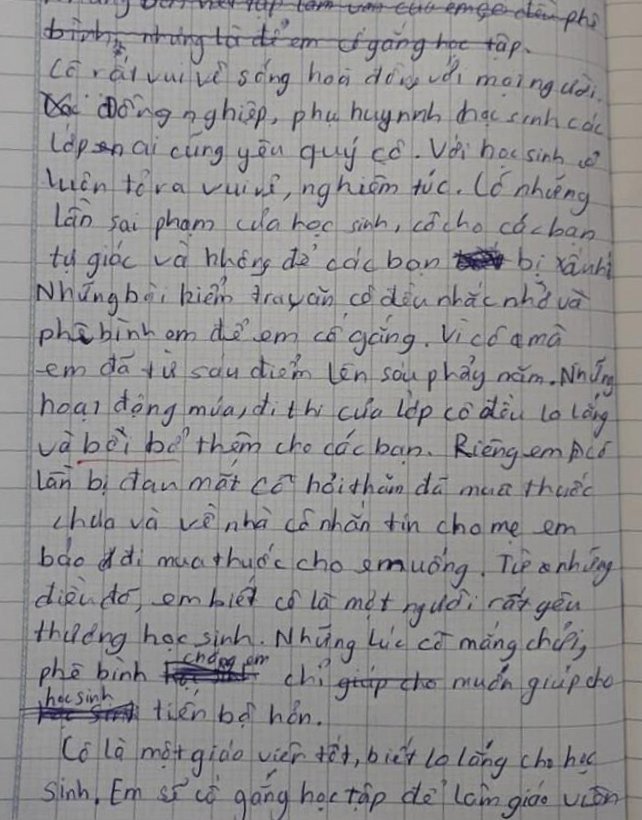 bài viết tập làm văn của em cô đều phê
bình, nhưng là để em cố gắng học tập.
Cô rất vui vẻ sống hoà đồng với mọi người.
Đồng nghiệp, phụ huynnh học sinh các
lớp ai cũng yêu quý cô. Với học sinh cô
luôn tỏ ra vui vẻ, nghiêm túc. Có những
lần sai phạm của học sinh, cô cho các bạn
tự giác và không để các bạn bị xấu hổ
Những bài kiểm tra văn cô đều nhắc nhở và
phê bình em để em cố gắng. Vì cô mà
em đã từ sáu điểm lên sáu phẩy năm. Những
hoạt động múa, đi thi của lớp cô đều lo lắng
và bồi bổ thêm cho các bạn. Riêng em có
lần bị đau mắt cô hỏi thăm đã mua thuốc
chưa và về nhà cô nhắn tin cho mẹ em
bảo đi mua thuốc cho em uống. Từ những
điều đó, em biết cô là một người rất yêu
thương học sinh. Những lúc cô mắng chửi,
phê bình chúng em chỉ muốn giúp cho
học sinh tiến bộ hơn.
Cô là một giáo viên tốt, biết lo lắng cho học
sinh. Em sẽ cố gắng học tập để làm giáo viên